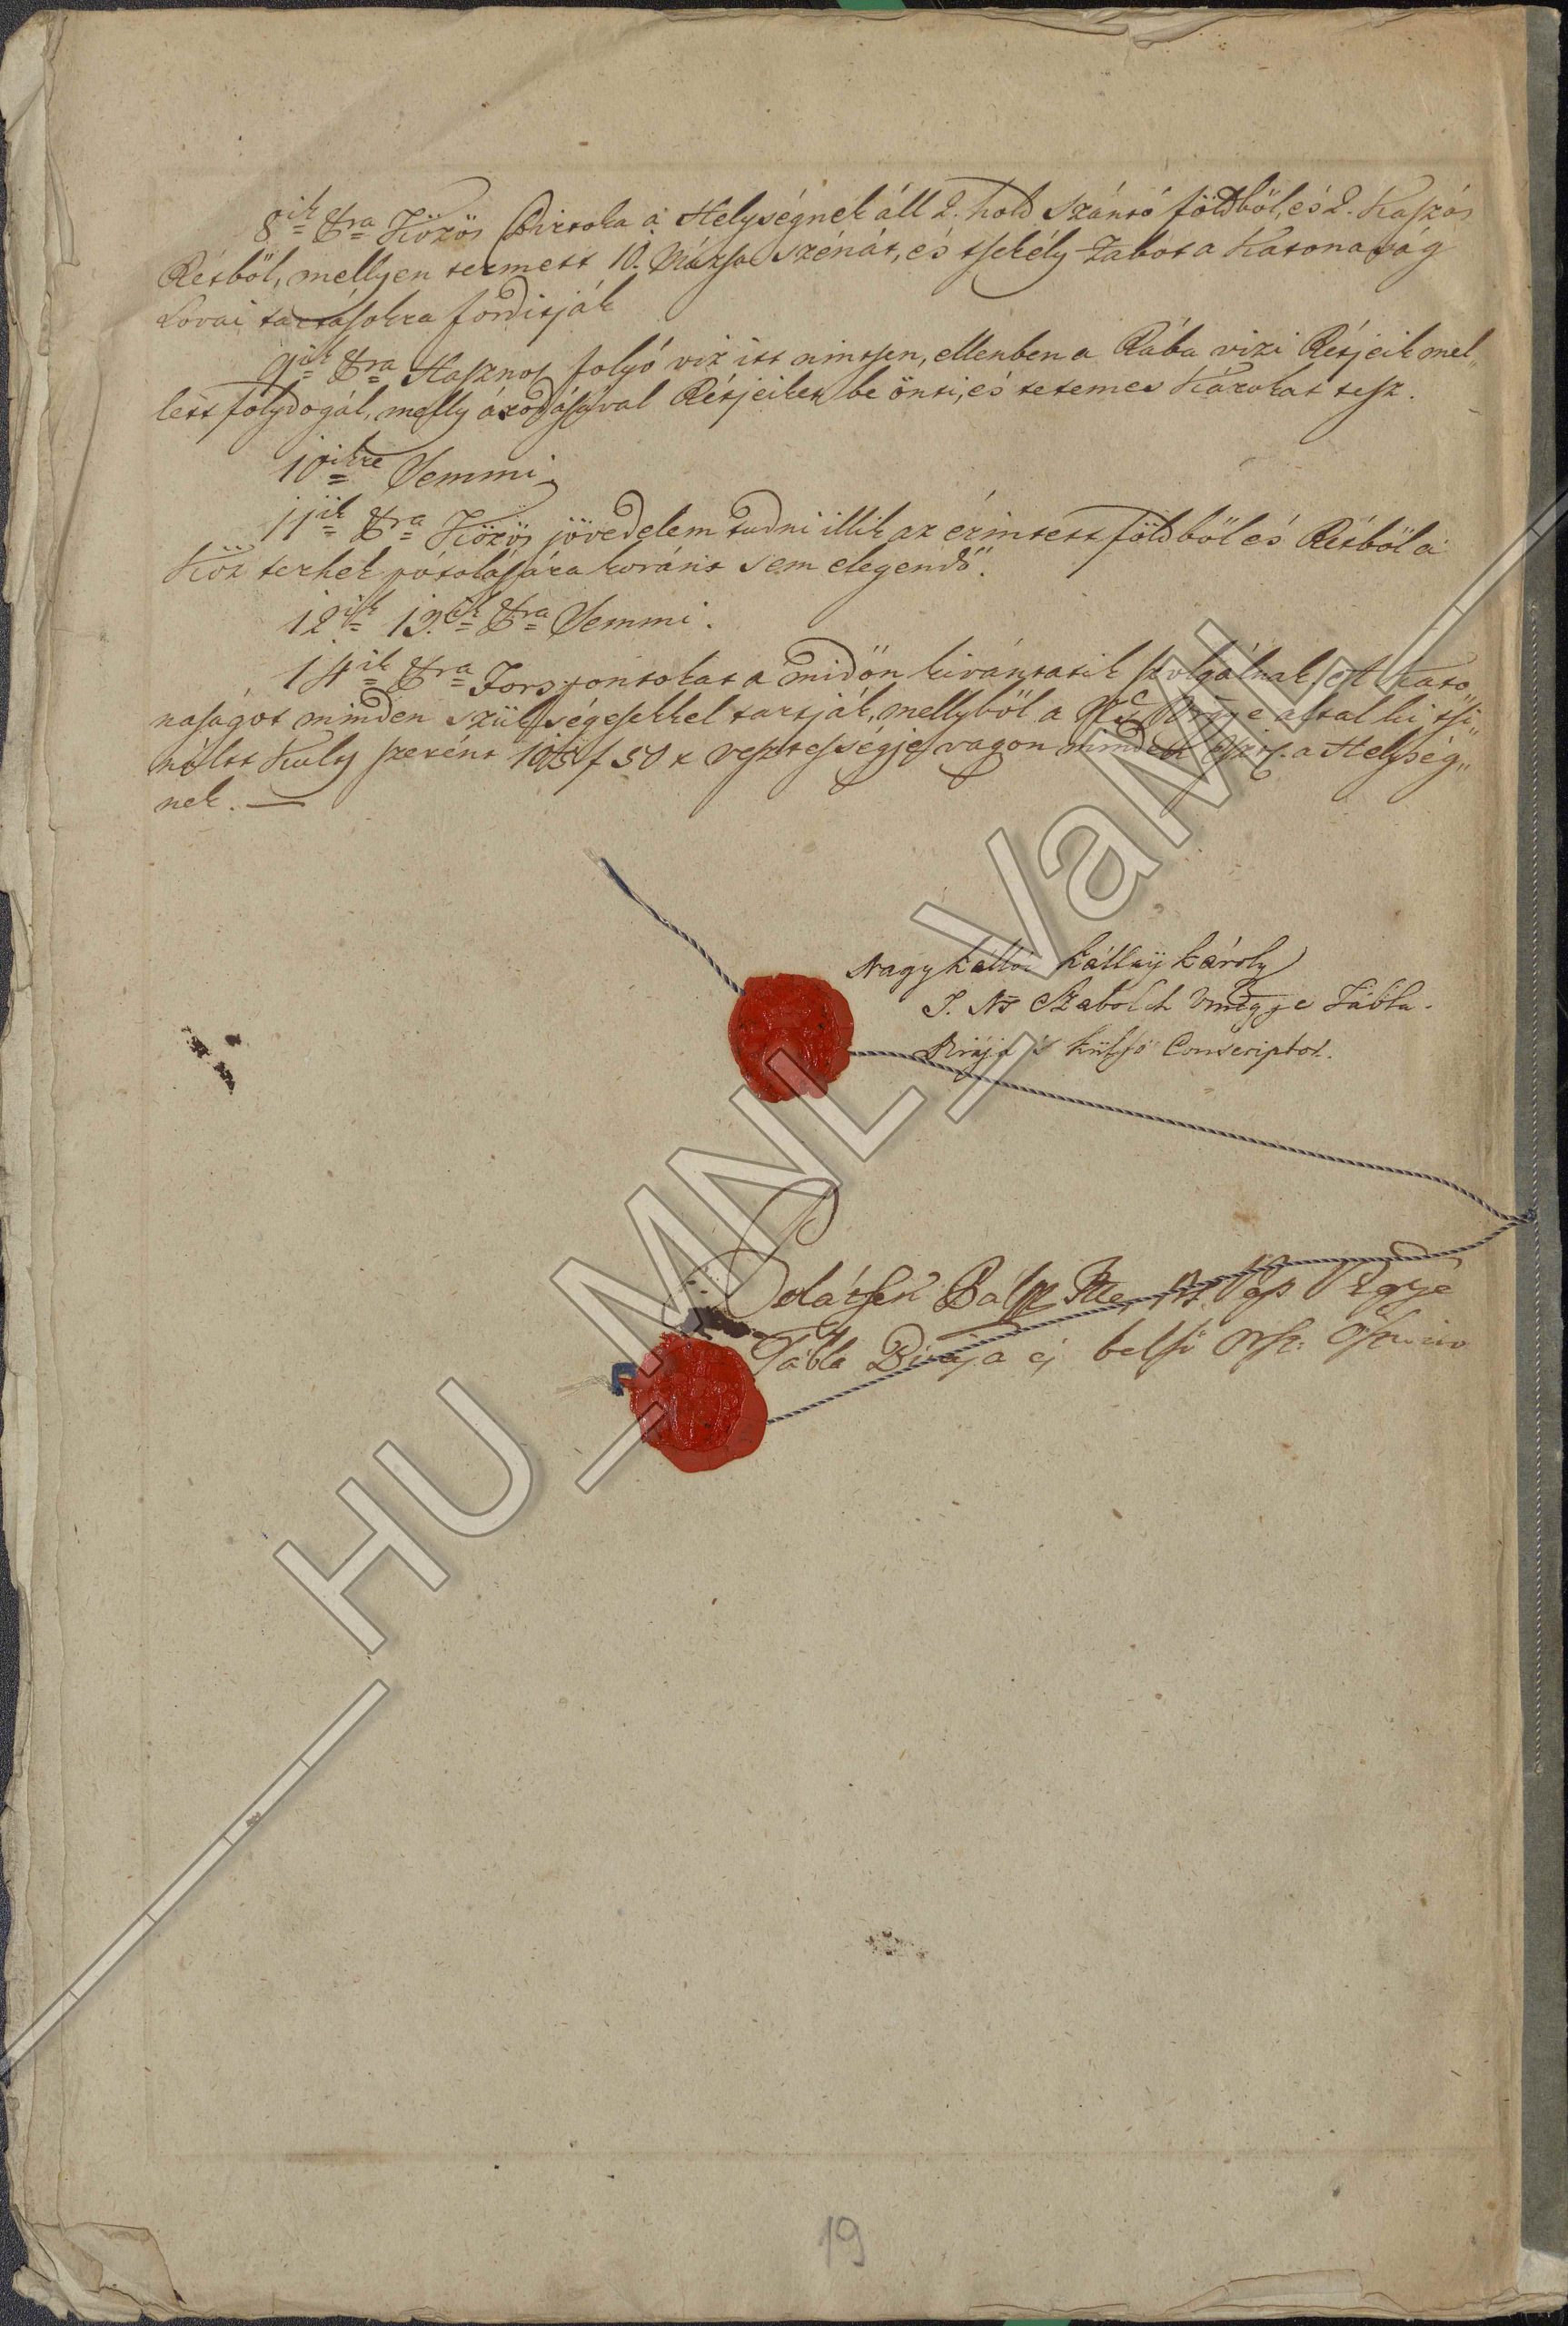 8ik &ra Közös Birtoka a' Helységnek áll 2. hold szántó földből, és 2. Kaszás
Rétből, mellyen termett 10. Mázsa szénát, és tsekély Zabot a Katonaság
Lovai tartásokra fordittják
9ik &ra Hasznos folyó viz itt nintsen, ellenben a Rába vizi Rétjeik mel„
lett folydogál, melly áradásával Rétjeiket be önti, és tetemes Károkat tesz.
10ikre Semmi
11ik &ra Közös jövedelem tudni illik az érintett földből és Rétből a'
Köz terhek pótolására koránt sem elegendő.
12ik 13ik &ra Semmi.
14ik &ra Forspontokat a' midőn kivántatik szolgálnak, A Kato„
naságot minden szükségesekkel tartják, mellyből a Ns Vmgye által ki tsi„
nált Kults szerént f 50 x vesztességje vagon minden a Helység„
nek. —
Nagy Kállói Kállaÿ Károly
T. Ns Szabolch Vmegye Tábla
Birája 's külső Conscriptor.
Ns Vas Vgye
Tábla Birája és belső
19
HU_MNL_VaML_